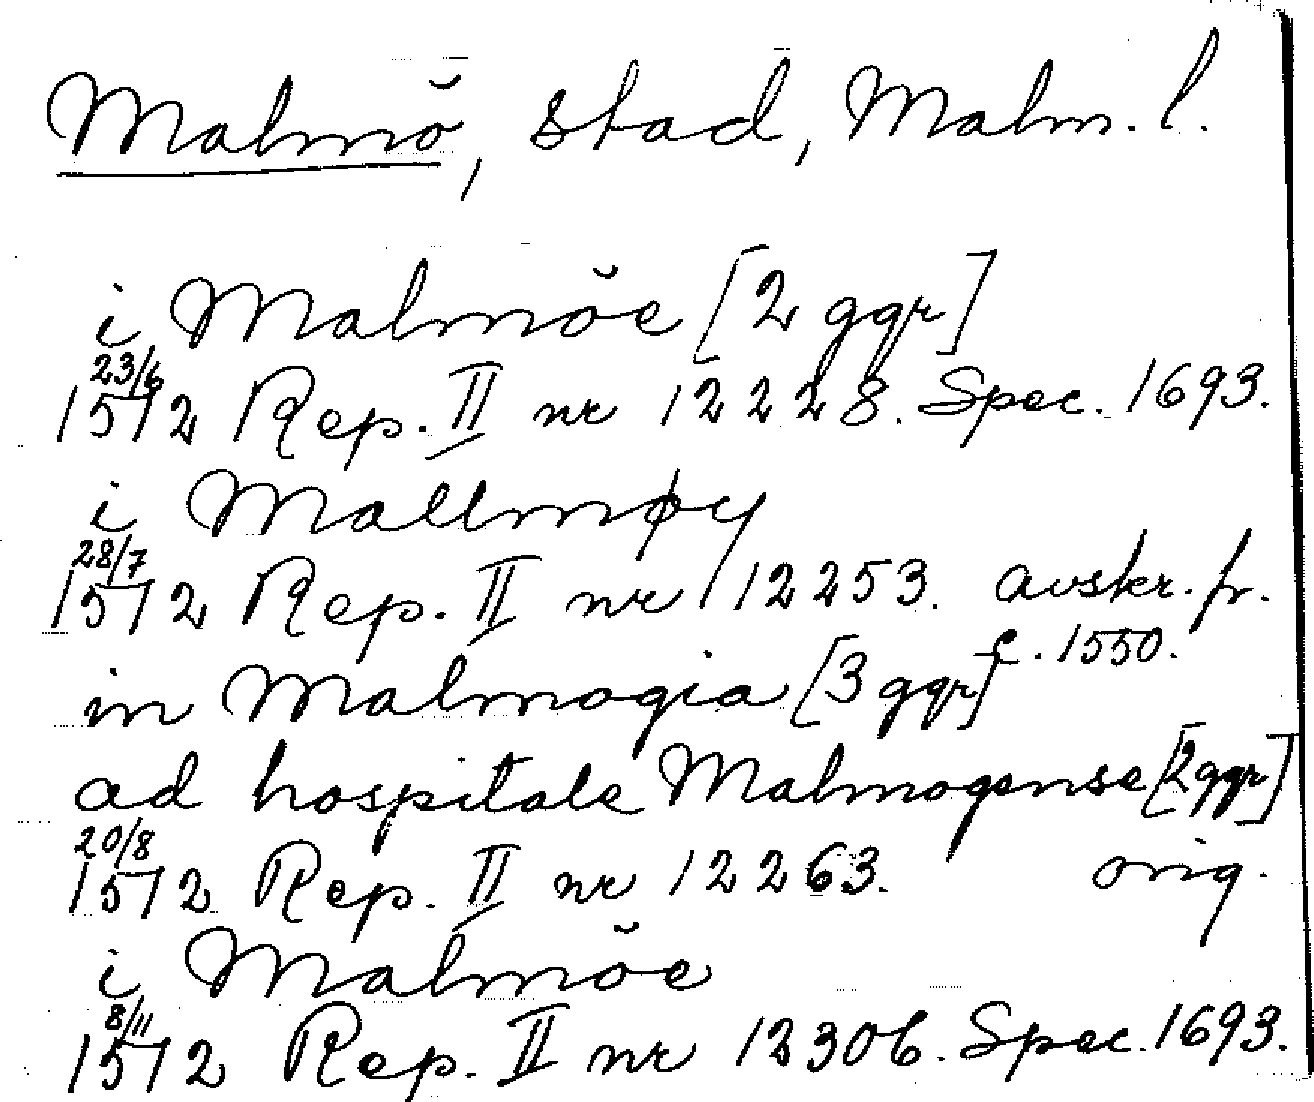 Malmö, stad, Malm. l.
i Malmŏe [2 ggr]
23/6
1512 Rep. II nr 12228. Spec. 1693.
i Mallmøy
28/7
1512 Rep. II nr 12253. avskr. fr.
c. 1550.
in Malmogia [3 ggr]
ad hospitale Malmogense [2 ggr]
20/8
1512 Rep. II nr 12263. orig.
i Malmŏe
8/11
1512 Rep. II nr 12306. Spec. 1693.